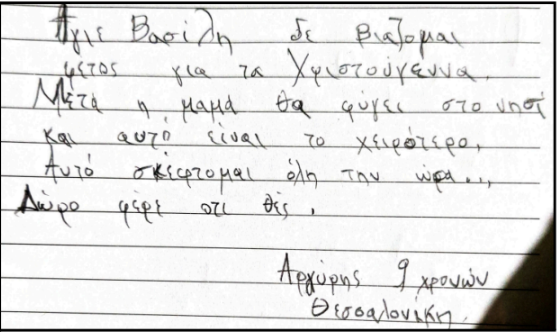 Άγιε Βασίλη δε βιάζομαι
φέτος για τα Χριστούγεννα.
Μετά η μαμά θα φύγει στο νησί
και αυτό είναι το χειρότερο,
Αυτό σκέφτομαι όλη την ώρα...
Δώρο φέρε οτι θες.
Αργύρης 9 χρονών
Θεσσαλονίκη.